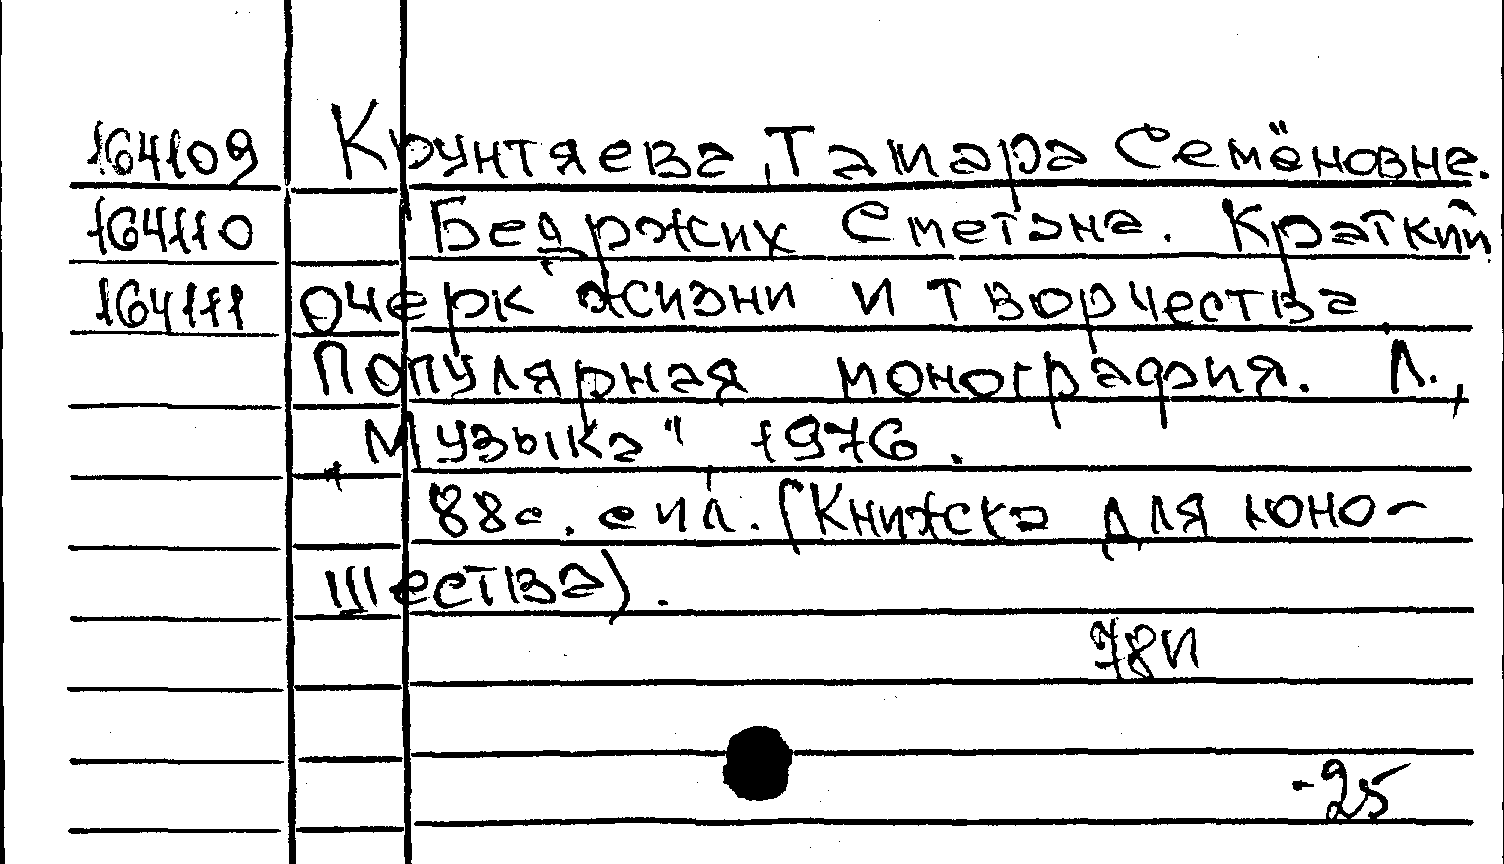 164109 Крунтяева, Тамара Семёновна.
164110 Бедржих Сметана. Краткий
164111 очерк жизни и творчества.
Популярная монография. Л.,
„Музыка" 1976.
88с. с ил. (Книжка для юно-
шества).
78И
-25